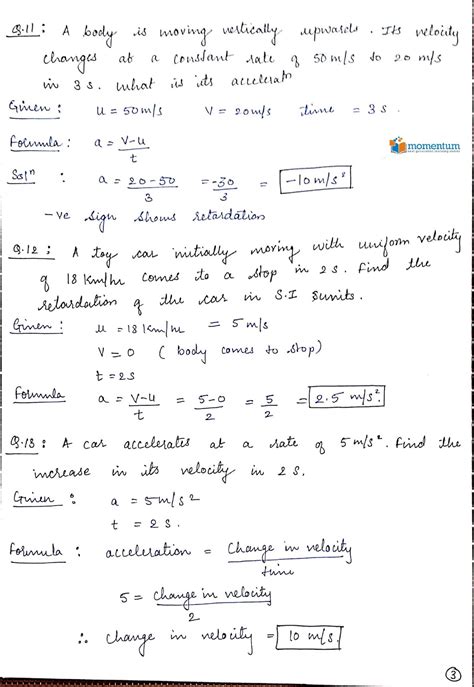 Q.11: A body is moving vertically upwards. Its velocity
changes at a constant rate of 50 m/s to 20 m/s
in 3 s. What is its acceleratn
Given: u = 50 m/s V = 20 m/s time = 3 s.
Formula: a = V-u/t
momentum
Soln: a = 20-50/3 = -30/3 = -10 m/s²
-ve sign shows retardation
Q.12: A toy car initially moving with uniform velocity
of 18 km/hr comes to a stop in 2 s. Find the
retardation of the car in S.I sunits.
Given: u = 18 km/hr = 5 m/s
V = 0 (body comes to stop)
t = 2s
Formula a = V-u/t = 5-0/2 = 5/2 = 2.5 m/s².
Q.13: A car accelerates at a rate of 5 m/s². Find the
increase in its velocity in 2 s.
Given: a = 5 m/s²
t = 2 s.
Formula: acceleration = Change in velocity/time
5 = change in velocity/2
∴ change in velocity = 10 m/s.
3